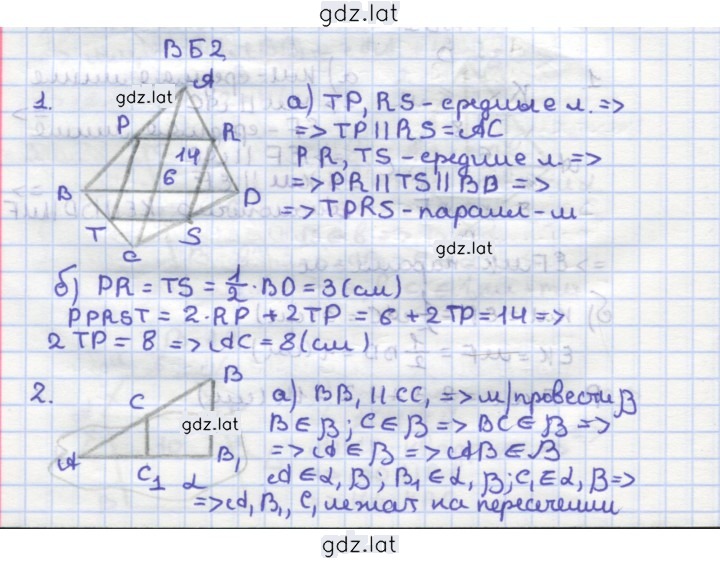 gdz.lat
В Б 2
1.
gdz.lat
A
P
R
14
6
B
D
T
S
C
а) TP, RS - средные л. =>
=> TP || RS = AC
PR, TS - средние л. =>
=> PR || TS || BD =>
=> TPRS - паралл-м
gdz.lat
б) PR = TS = 1/2 · BD = 3 (см)
PPRST = 2·RP + 2TP = 6 + 2TP = 14 =>
2TP = 8 => AC = 8 (см)
2.
B
C
gdz.lat
A
C1
α
B1
а) BB1 || CC1 => м/провести β
B ∈ β; C ∈ β => BC ∈ β =>
=> A ∈ β => AB ∈ β
A ∈ α, β; B1 ∈ α, β; C1 ∈ α, β =>
=> A, B1, C1 лежат на пересечении
gdz.lat